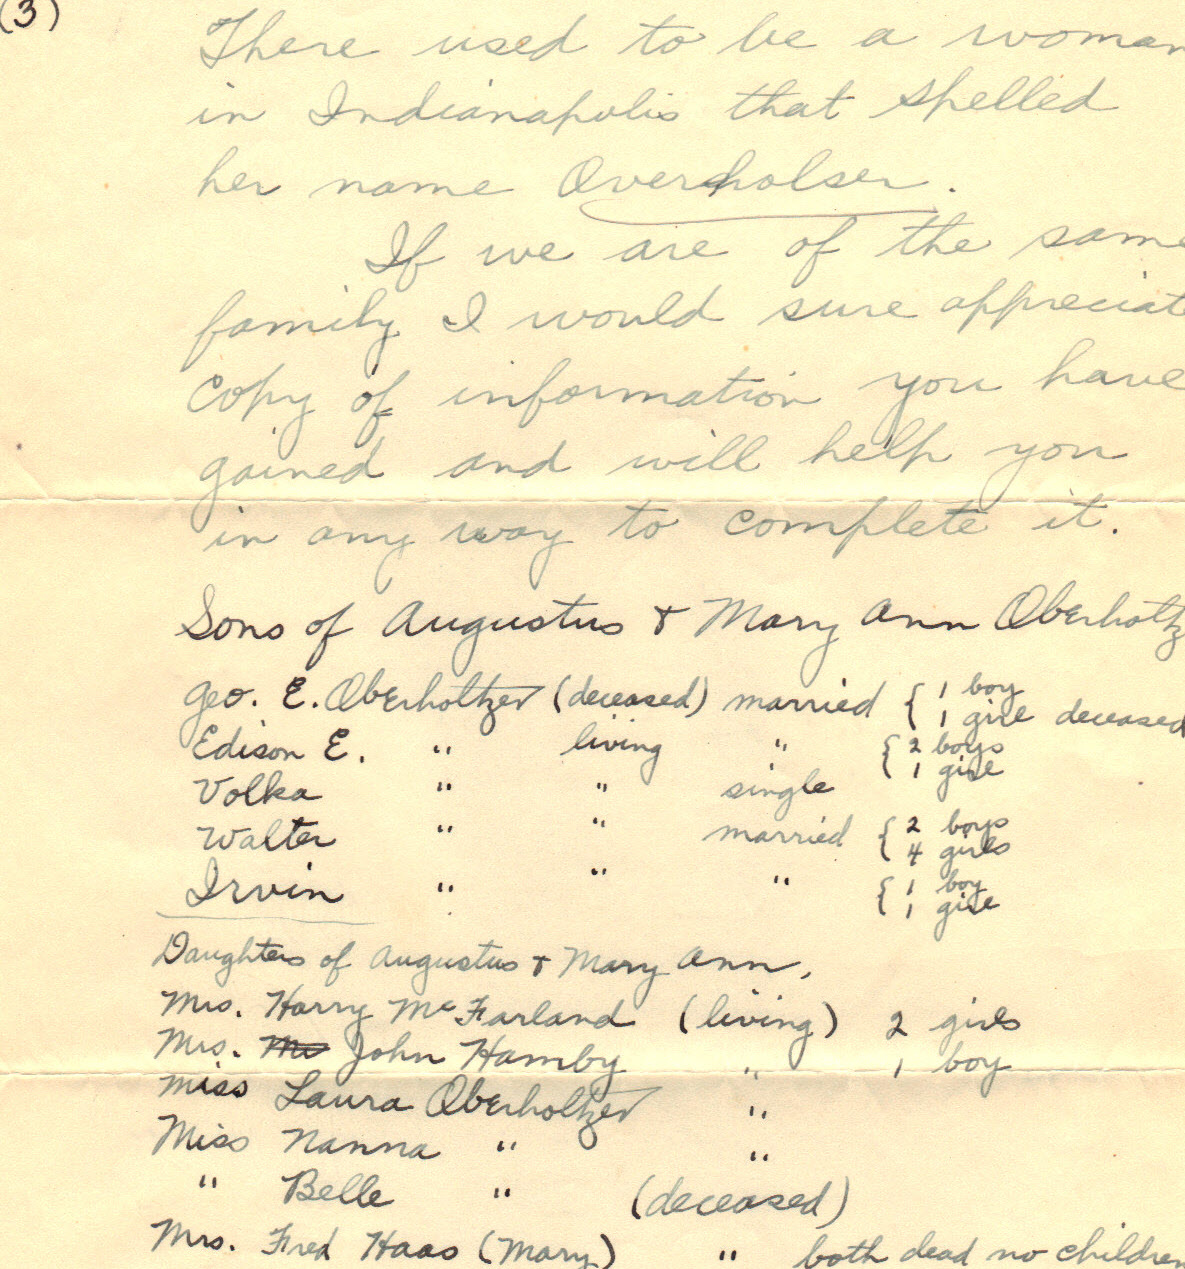 (3)
There used to be a woman
in Indianapolis that spelled
her name Overholser.
If we are of the same
family I would sure appreciate
copy of information you have
gained and will help you
in any way to complete it.
Sons of Augustus & Mary Ann Oberholtz
Geo. E. Oberholtzer (deceased) married { 1 boy
1 girl deceased
Edison E. " living " { 2 boys
1 girl
Volka " " single
Walter " " married { 2 boys
4 girls
Irvin " " " { 1 boy
1 girl
Daughters of Augustus & Mary Ann,
Mrs. Harry McFarland (living) 2 girls
Mrs. John Hamby " 1 boy
Miss Laura Oberholtzer "
Miss Nanna " "
" Belle " (deceased)
Mrs. Fred Haas (Mary) " both dead no children